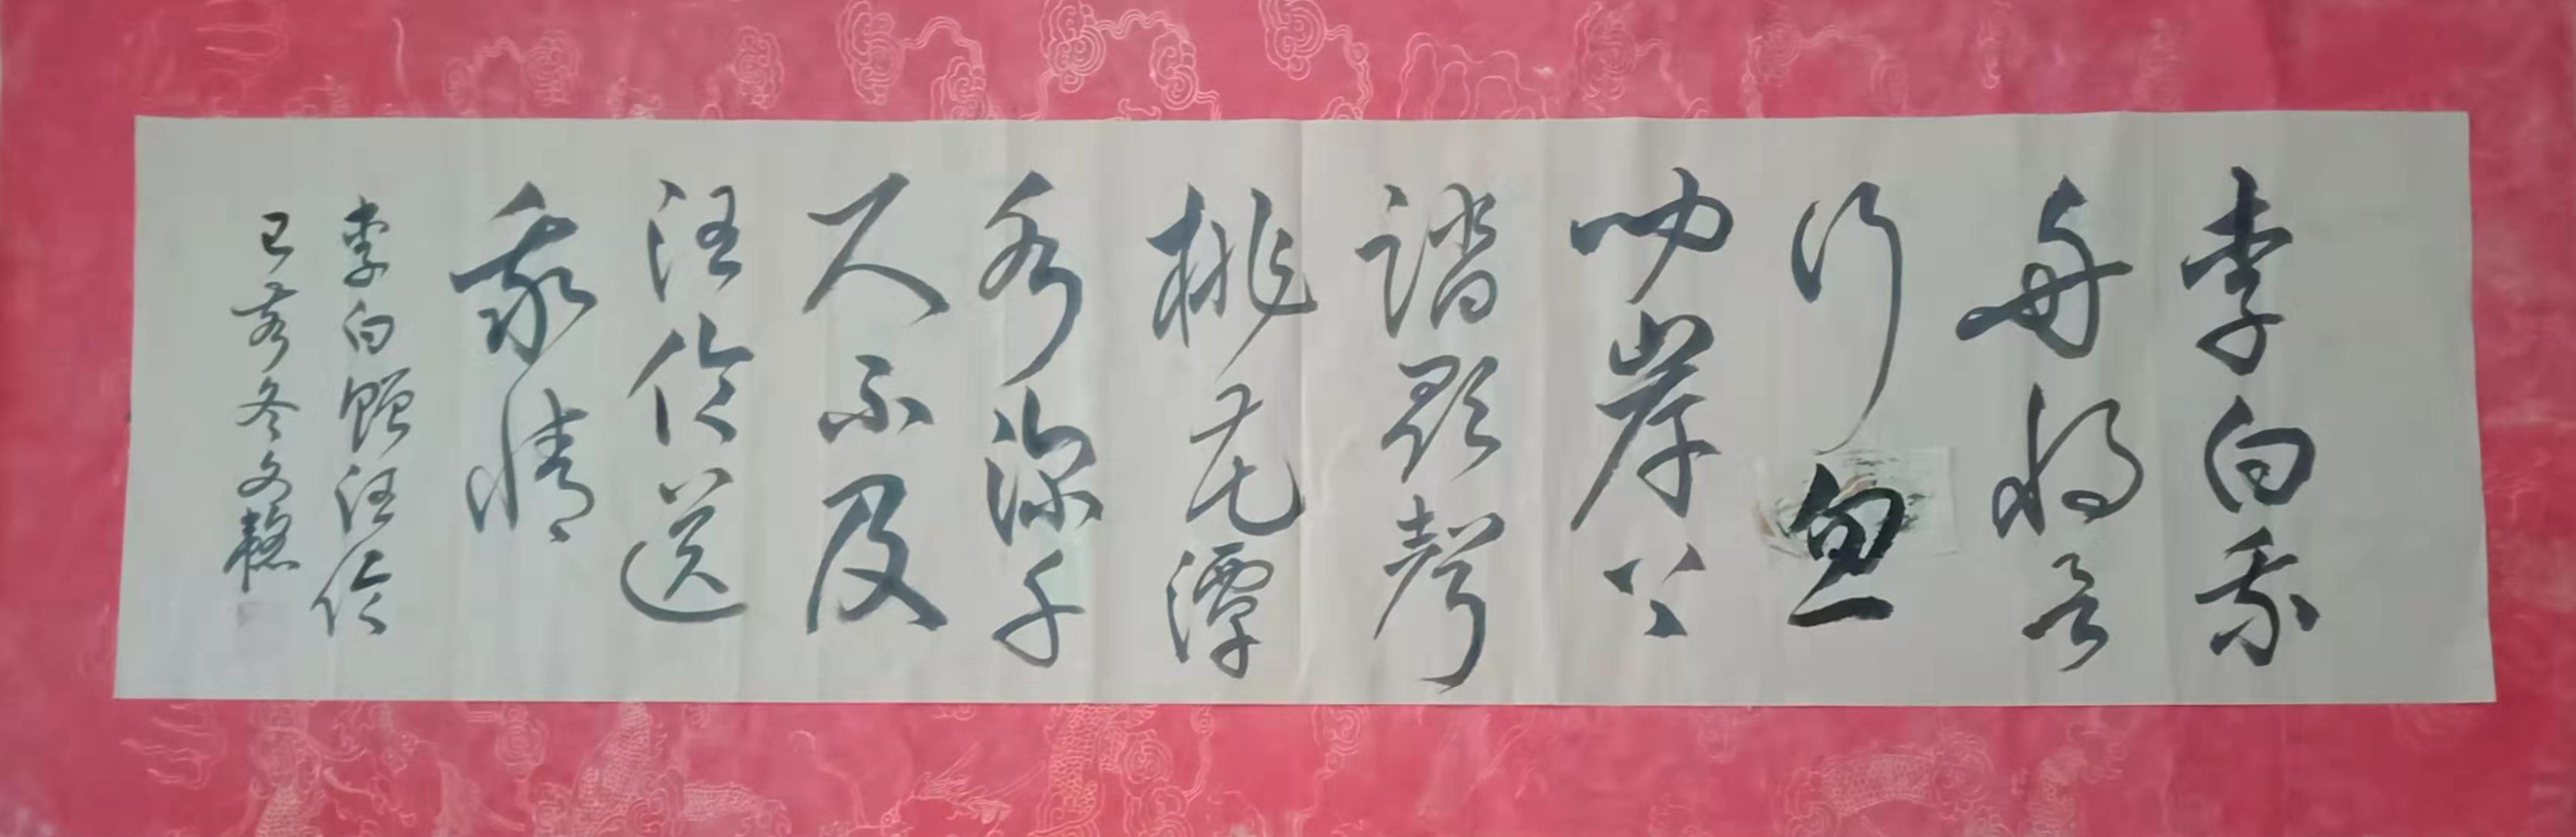 李白乘
舟將欲
行忽
聞岸上
踏歌聲
桃花潭
水深千
尺不及
汪伦送
我情
李白贈汪伦
己亥冬文